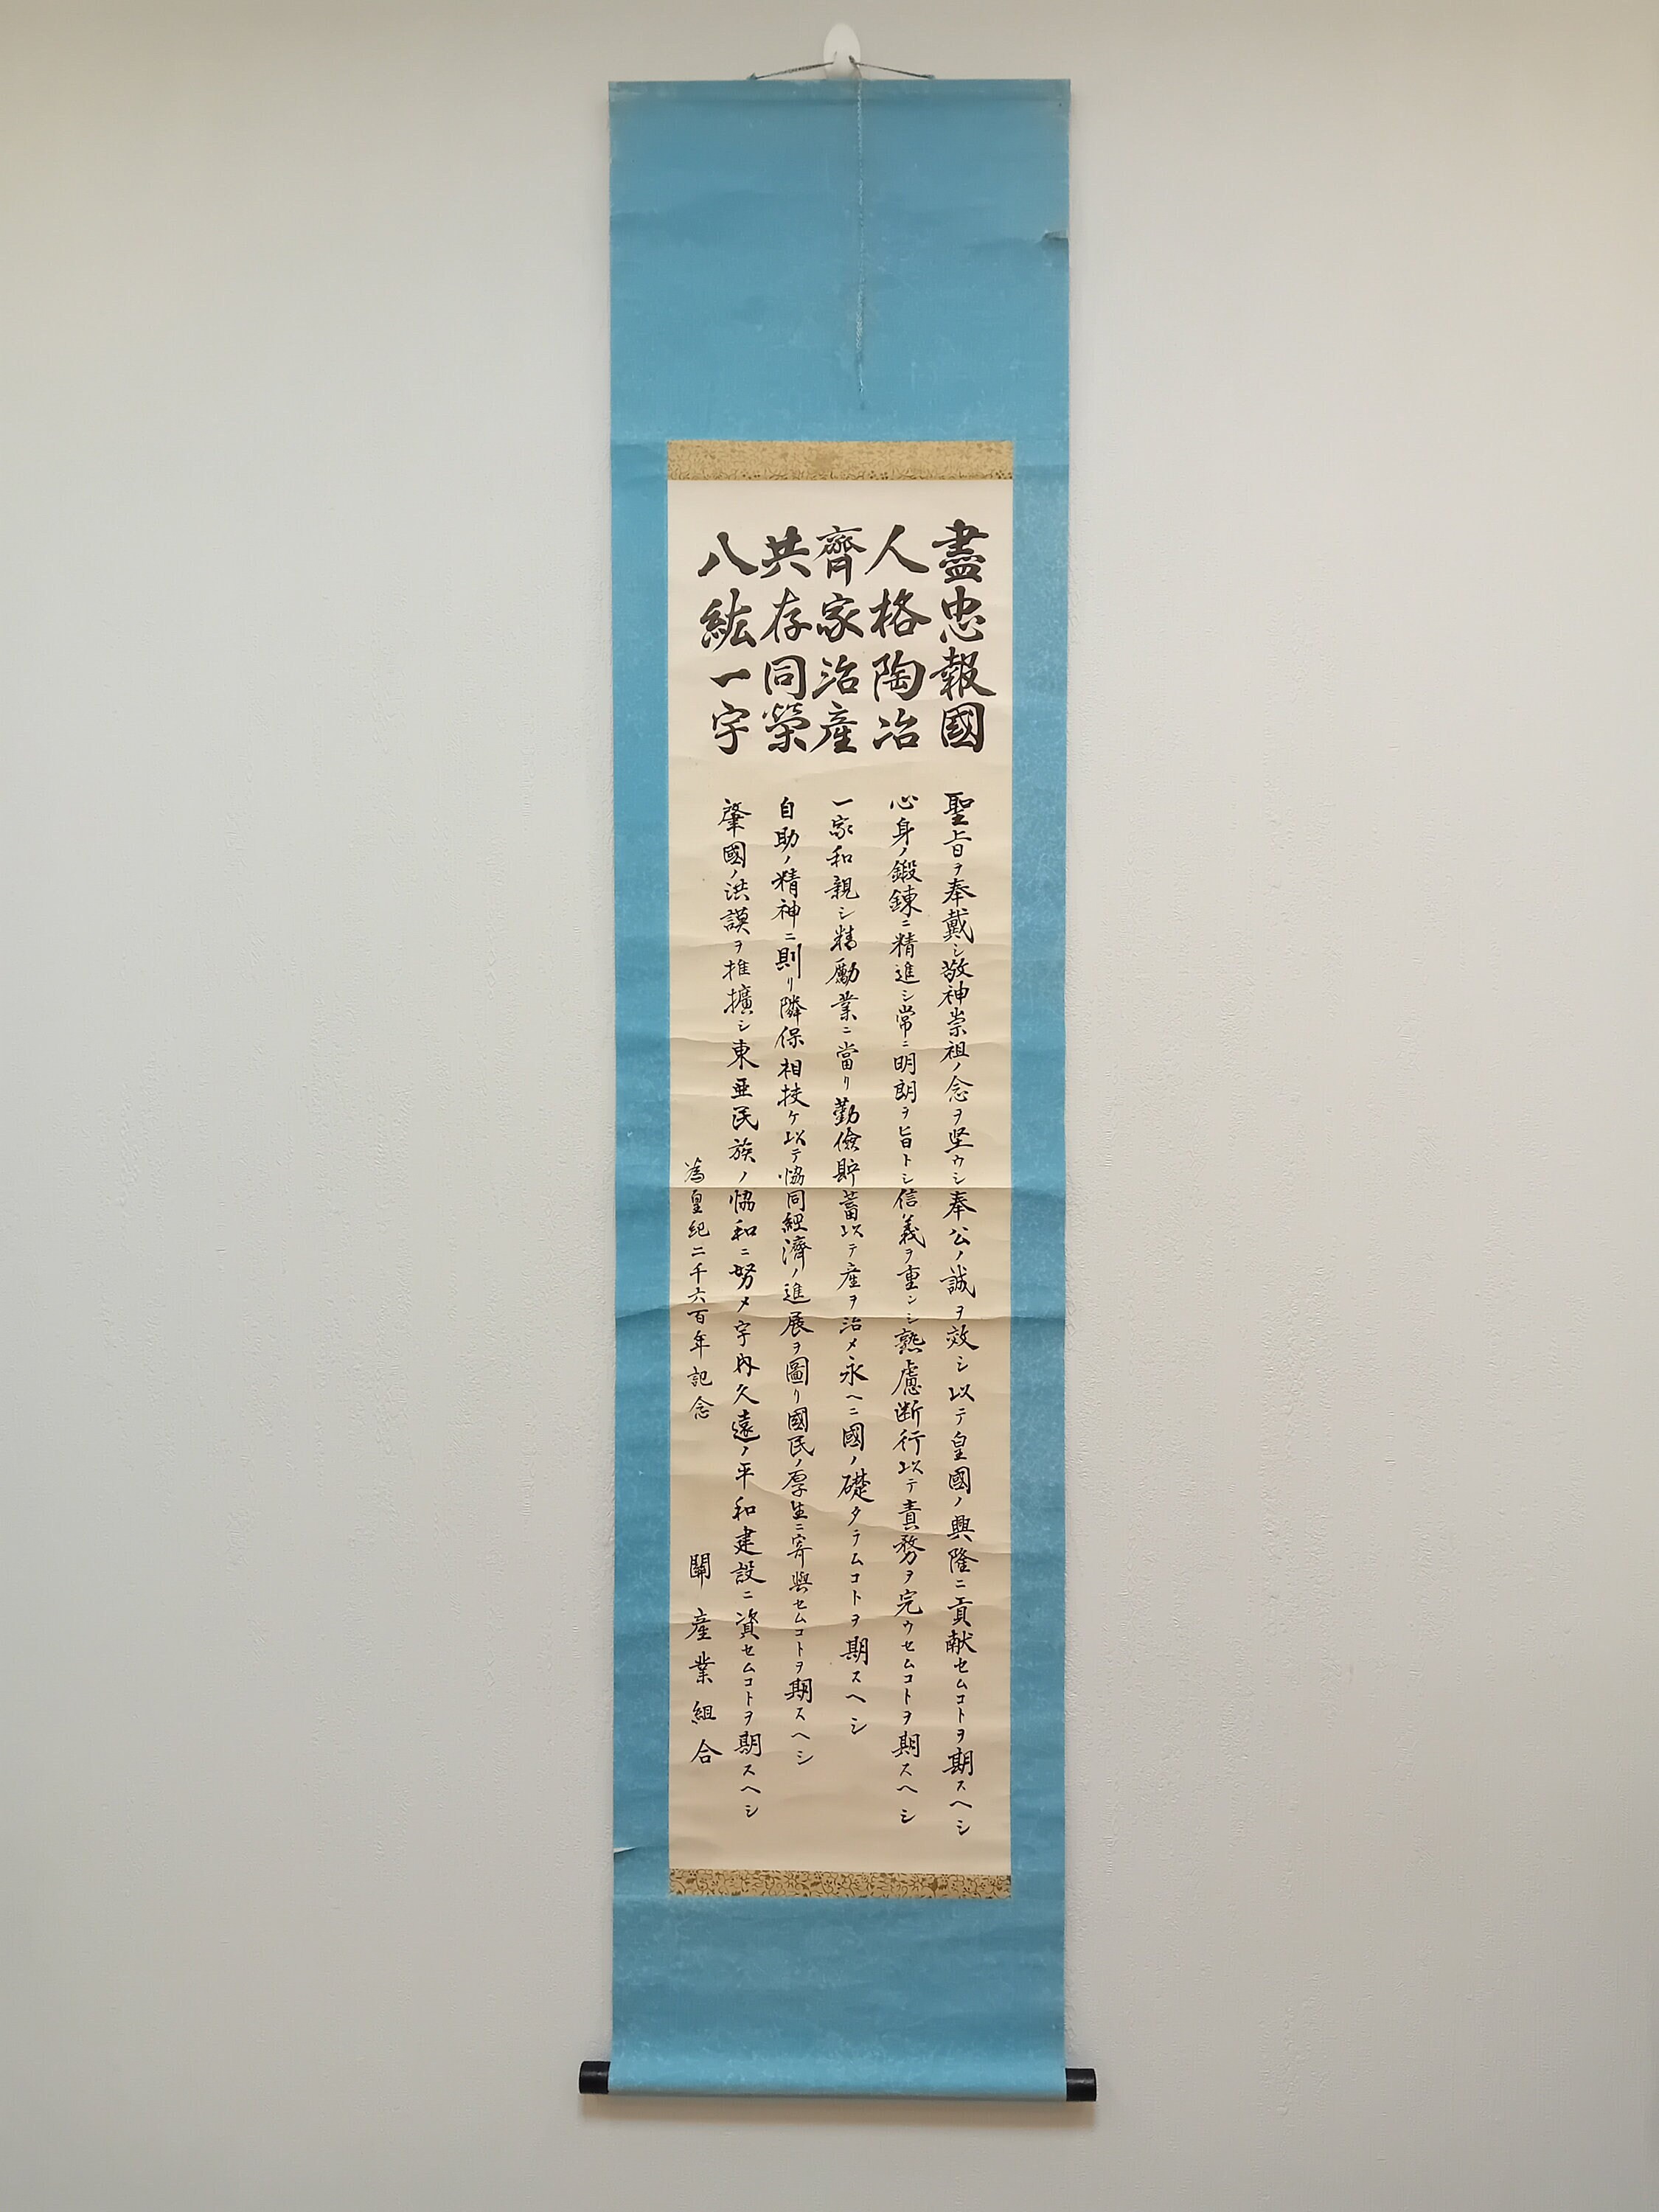 盡忠報國
人格陶冶
齊家治產
共存同榮
八紘一宇
聖旨ヲ奉戴シ敬神崇祖ノ念ヲ堅ウシ奉公ノ誠ヲ效シ以テ皇國ノ興隆ニ貢献セムコトヲ期スヘシ
心身ノ鍛錬ニ精進シ常ニ明朗ヲ旨トシ信義ヲ重ンシ熟慮断行以テ責務ヲ完ウセムコトヲ期スヘシ
一家和親シ精勵業ニ當リ勤儉貯蓄以テ產ヲ治メ永ヘニ國ノ礎タラムコトヲ期スヘシ
自助ノ精神ニ則リ隣保相扶ケ以テ恊同經濟ノ進展ヲ圖リ國民ノ厚生ニ寄與セムコトヲ期スヘシ
肇國ノ洪謨ヲ推擴シ東亜民族ノ恊和ニ努メ宇內久遠ノ平和建設ニ資セムコトヲ期スヘシ
為皇紀二千六百年記念
產業組合